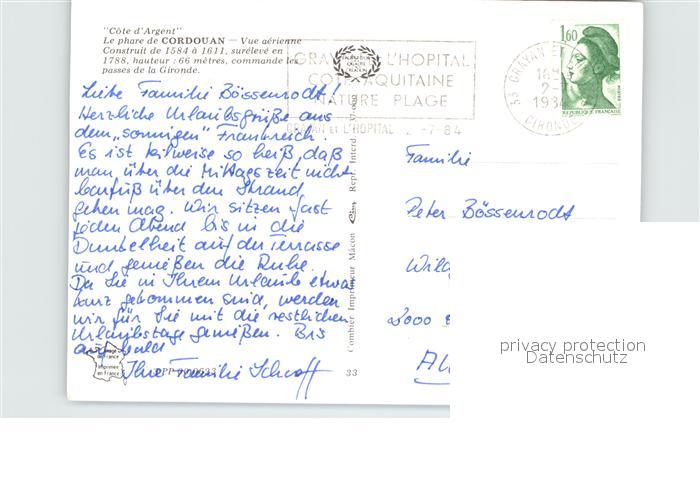 "Côte d'Argent"
Le phare de CORDOUAN — Vue aérienne
Construit de 1584 à 1611, surélevé en
1788, hauteur : 66 mètres, commande les
passes de la Gironde.
GRAYAN et L'HOPITAL
COTE AQUITAINE
NATURE PLAGE
GRAYAN ET L'HOPITAL -7-84
33 GRAYAN ET
GIRONDE
1,60
REPUBLIQUE FRANCAISE
Liebe Familie Bössenrodt!
Herzliche Urlaubsgrüße aus
dem „sonnigen" Frankreich.
Es ist teilweise so heiß, daß
man über die Mittagszeit nicht
barfuß über den Strand
gehen mag. Wir sitzen fast
jeden Abend bis in die
Dunkelheit auf der Terrasse
und genießen die Ruhe.
Da Sie in Ihrem Urlaub etwas
kurz gekommen sind, werden
wir für Sie mit die restlichen
Urlaubstage genießen. Bis
auf bald
Ihre Familie
Familie
Peter Bössenrodt
2000
Combier Imprimeur Mâcon
Repr. Interd.
Imprimée
en France
33
privacy protection
Datenschutz